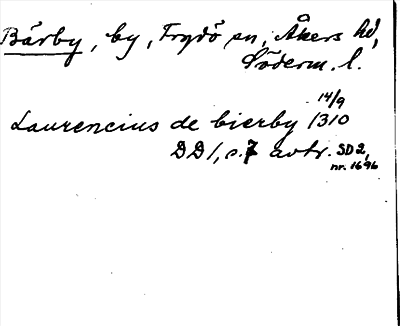 Bärby, by, Frydö sn, Åkers hd,
Söderm. l.
14/9
Laurencius de bierby 1310
DD 1, s. 7 avtr. SD 2,
nr. 1696